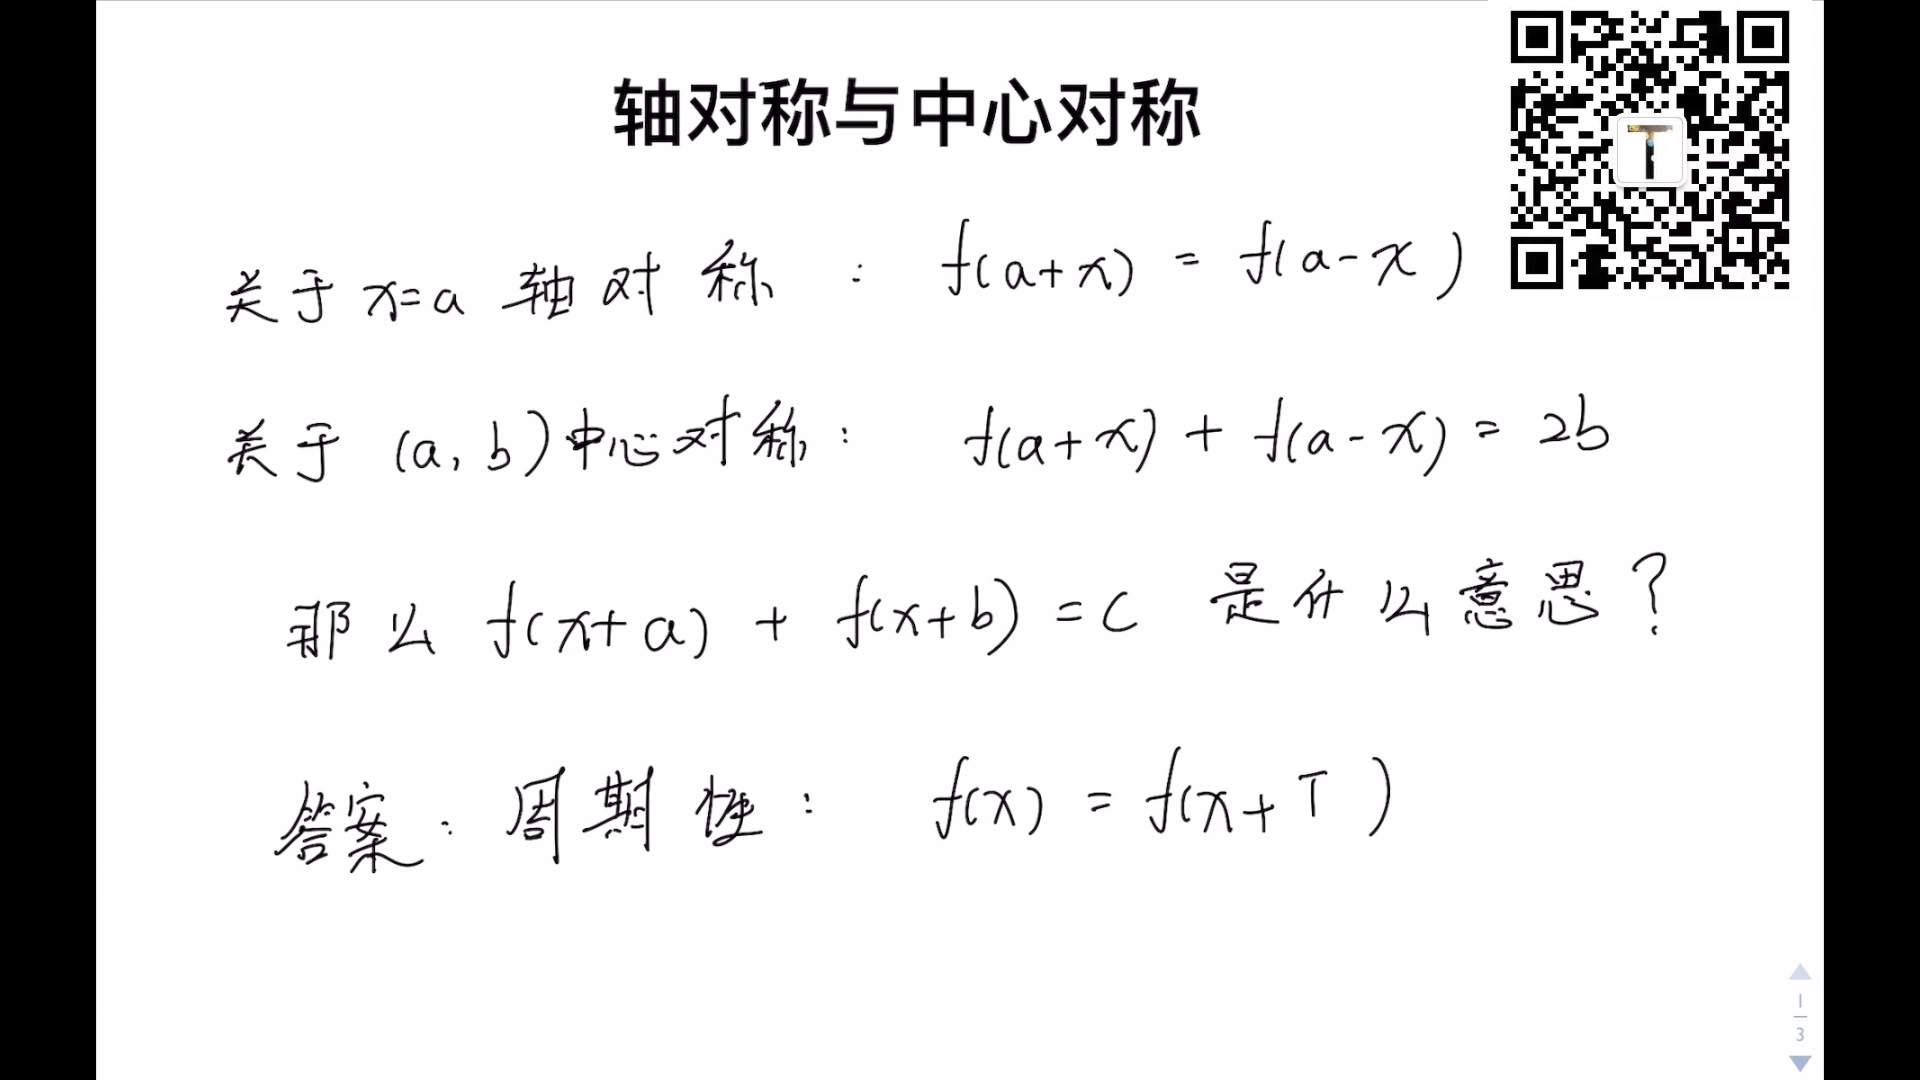 轴对称与中心对称
关于 x=a 轴对称 : f(a+x) = f(a-x)
关于 (a, b) 中心对称 : f(a+x) + f(a-x) = 2b
那么 f(x+a) + f(x+b) = C 是什么意思?
答案 : 周期性 : f(x) = f(x+T)
T
1
3